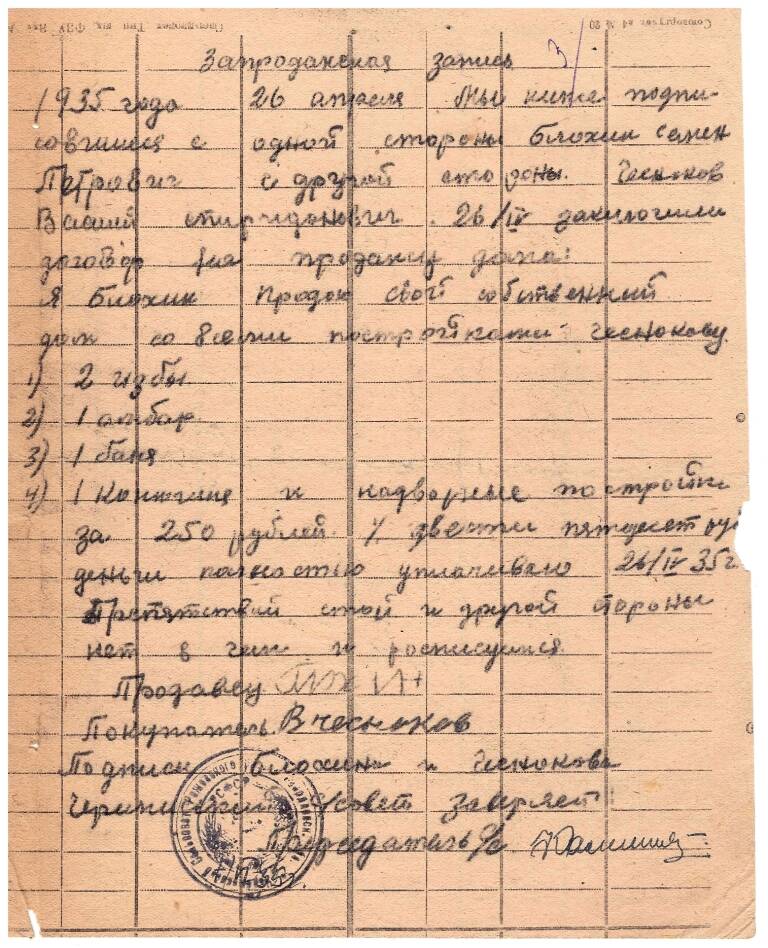 Союзоргучет №20
Запроданская запись 3/
1935 года 26 апреля Мы ниже подпи-
совшиеся с одной стороны Блохин Семен
Петрович с другой стороны. Чесноков
Василий спиридонович. 26/IV заключили
договор на продажу дома:
Я Блохин Продою свой собственний
дом со всеми постройками Чеснокову
1) 2 избы
2) 1 амбар
3) 1 баня
4) 1 Конюшня и надворные постройки
за 250 рублей. двести пятдесят руб
деньги полностью уплачиваю 26/IV 35 г.
Препятствий стой и другой стороны
нет в чем и росписуимся.
Продавец
Покупатель. В Чесноков
Подписи Блохина и Чеснокова
С/совет заверяет:
Председатель С/с
РСФСР